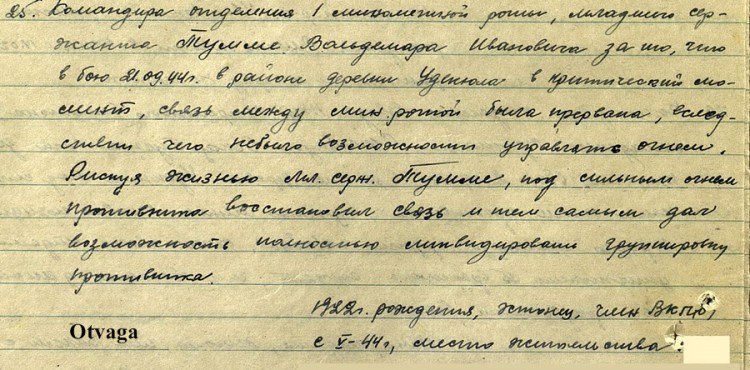 25. Командира отделения 1 минометной роты, младшего сер-
жанта Тумме Вольдемара Ивановича за то, что
в бою 21.09.44г. в районе деревни Удекюла в критический мо-
мент, связь между мин. ротой была прервана, вслед-
ствии чего небыло возможности управлять огнем.
Рискуя жизнью мл. серж. Тумме, под сильным огнем
противника восстановил связь и тем самым дал
возможность полностью ликвидировать группировку
противника.
1922г. рождения, эстонец, член ВКП(б)
с V-44г., место жительства:
Otvaga